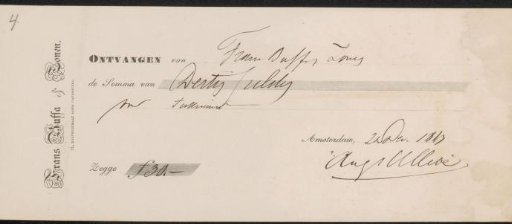 4
Frans Buffa & Zonen.
ONTVANGEN van Frans Buffa & Zonen
de Somma van Dertig Gulden
voor
Amsterdam, 2 Dec. 1867
Zegge f 30.-